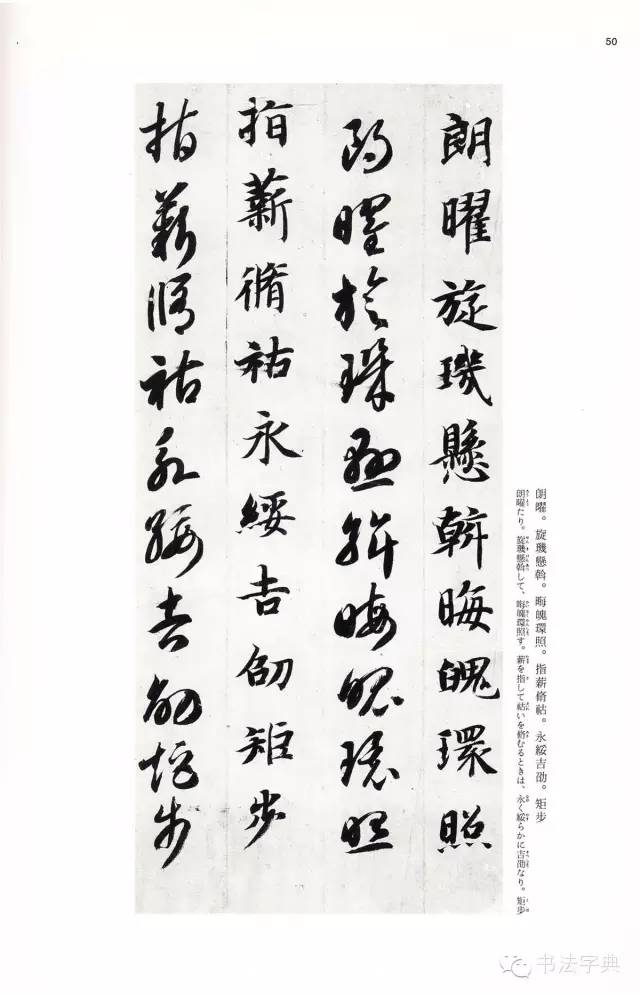 50
朗曜旋璣懸斡晦魄環照
朗曜旋璣懸斡晦魄環照
指薪脩祜永綏吉劭矩步
指薪脩祜永綏吉劭矩步
朗曜。旋璣懸斡。晦魄環照。指薪脩祜。永綏吉劭。矩步
朗曜たり。旋璣懸斡して、晦魄環照す。薪を指して祜いを脩むるときは、永く綏らかに吉劭なり。矩步
书法字典